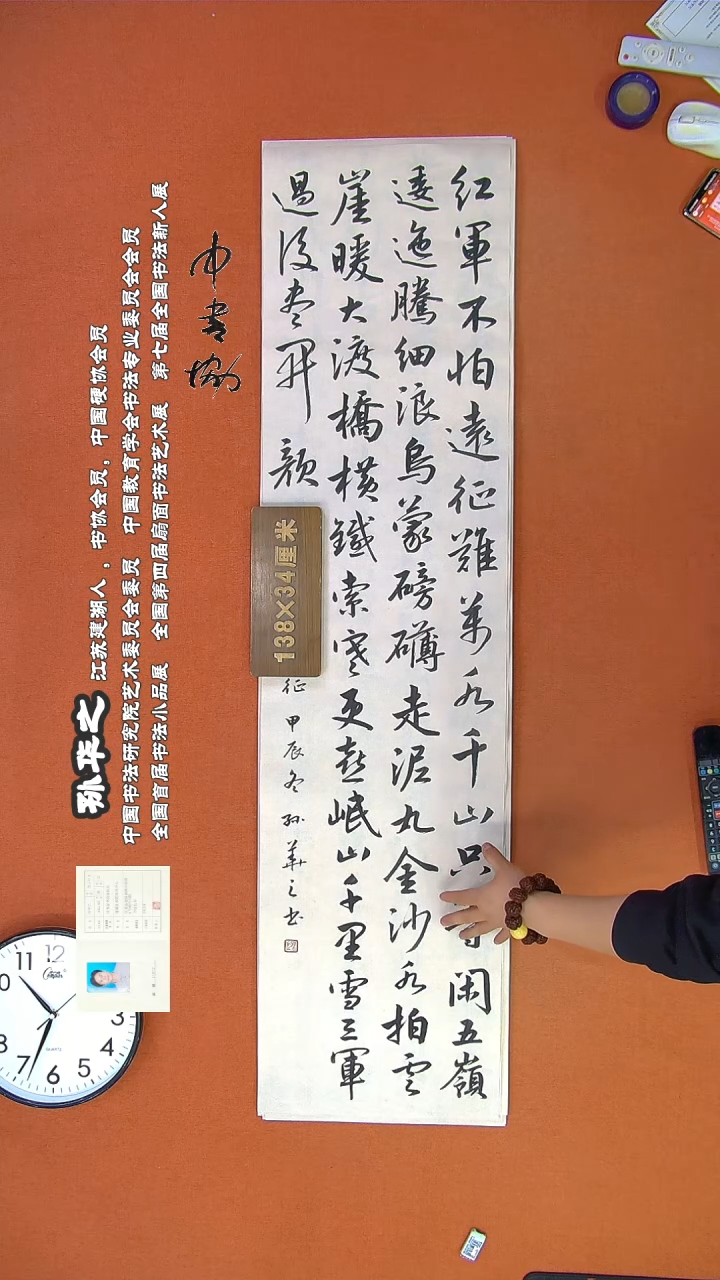 紅軍不怕遠征難萬水千山只閑五嶺
逶迤騰細浪烏蒙磅礴走泥丸金沙水拍雲
崖暖大渡橋横鐵索寒更喜岷山千里雪三軍
過後盡開顔
征 甲辰冬 孫華之书
138×34厘米
中书协
孙华之 江苏建湖人，书协会员，中国硬协会员
中国书法研究院艺术委员会委员 中国教育学会书法专业委员会会员
全国首届书法小品展 全国第四届扇面书法艺术展 第七届全国书法新人展
11 12
3
8 7 6 5 4